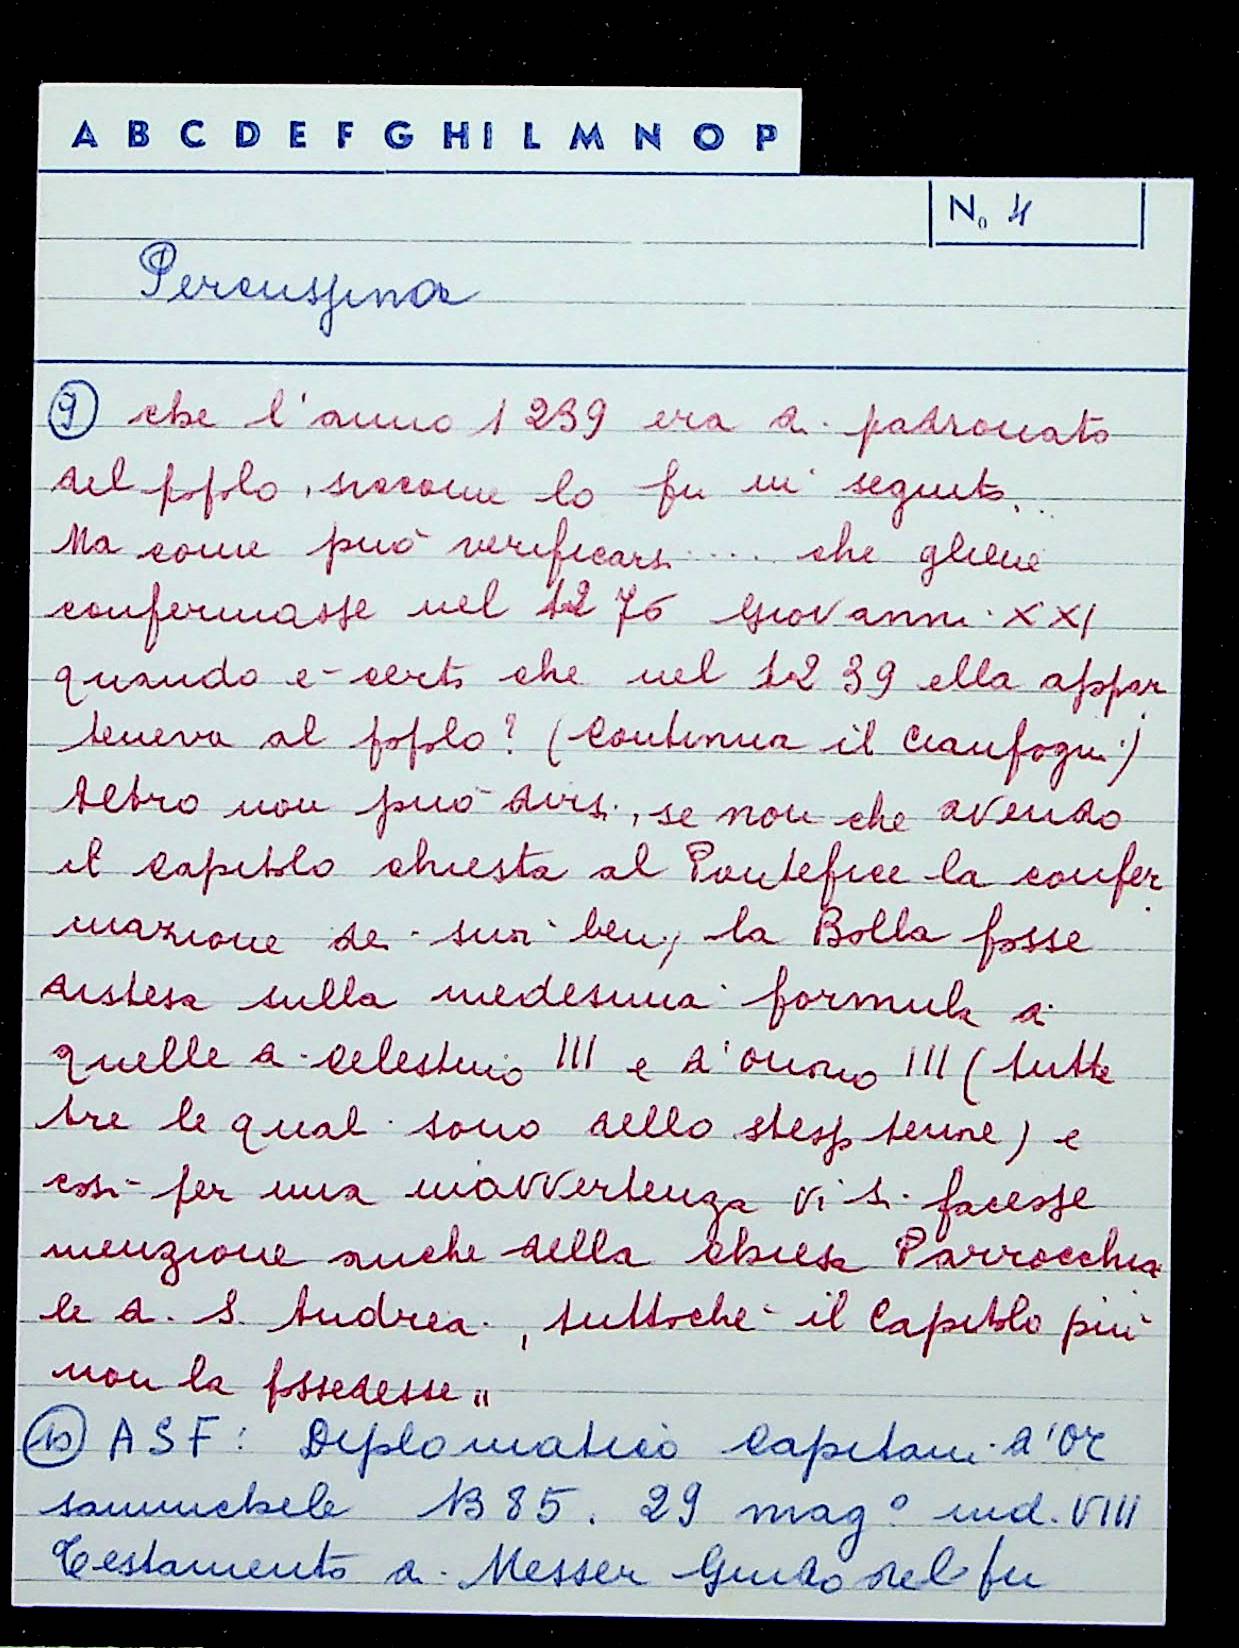 A B C D E F G H I L M N O P
No 4
Percussina
9 che l'anno 1239 era di patronato
del popolo, siccome lo fu in seguito...
Ma come può verificarsi .... che gliene
confermasse nel 1276 Giovanni XXI
quando è certo che nel 1239 ella appar
teneva al popolo? (continua il Cianfogni)
Altro non può dirsi, se non che avendo
il capitolo chiesta al Pontefice la confer
mazione dei suoi beni, la Bolla fosse
distesa sulla medesima formula di
quelle di Celestino III e d'Onorio III (tutte
tre le quali sono dello stesso tenore) e
così per una inavvertenza vi si facesse
menzione anche della chiesa Parrocchia
le di S. Andrea, tuttoché il Capitolo più
non la possedesse"
10 ASF: Diplomatico Capitani d'Or
sanmichele 1385. 29 magº ind. VIII
Testamento di Messer Guido del fu